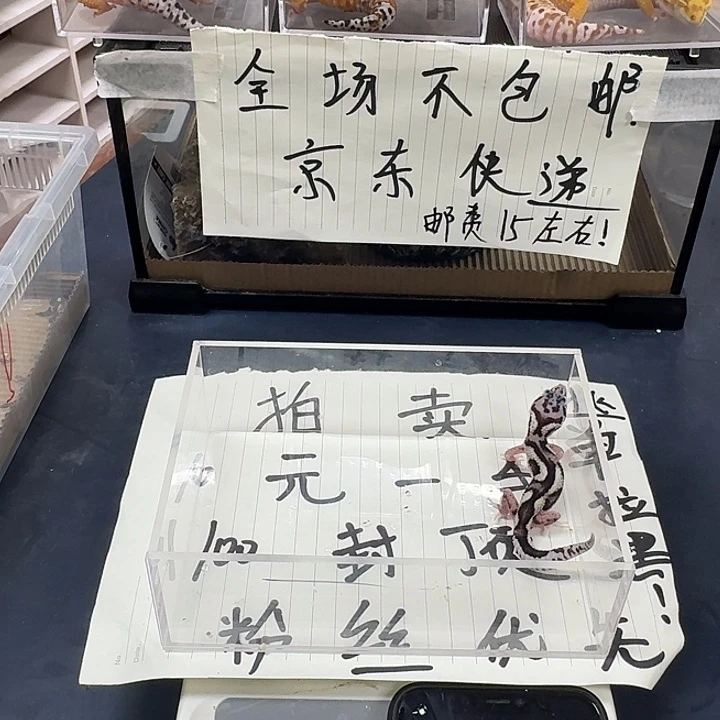 全场不包邮
京东快递
邮费15左右!
拍卖
元一
100封顶
粉丝优先
拉黑!